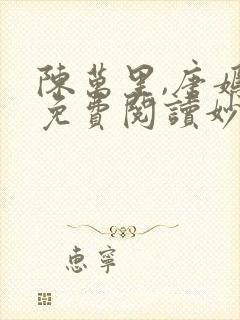 陳萬里,唐嫣
免費閱讀妙
惠寧